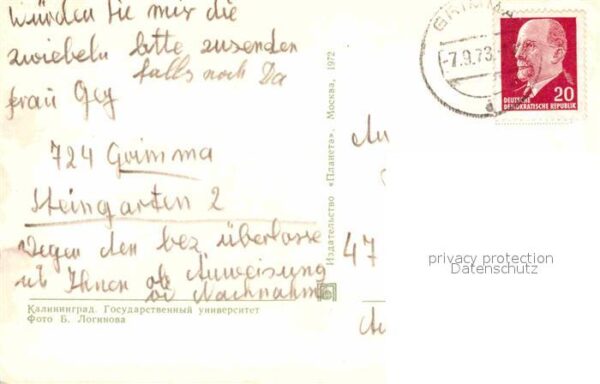 Würden Sie mir die
zwiebeln bitte zusenden
falls noch Da
frau Gey
724 Grimma
Steingarten 2
Wegen den bez überlasse
ich Ihnen ob Anweisung
od Nachnahm
Калининград. Государственный университет
Фото Б. Логинова
Издательство «Планета». Москва, 1972
GRIMMA
-7.9.73.-
20
DEUTSCHE
DEMOKRATISCHE REPUBLIK
47
privacy protection
Datenschutz